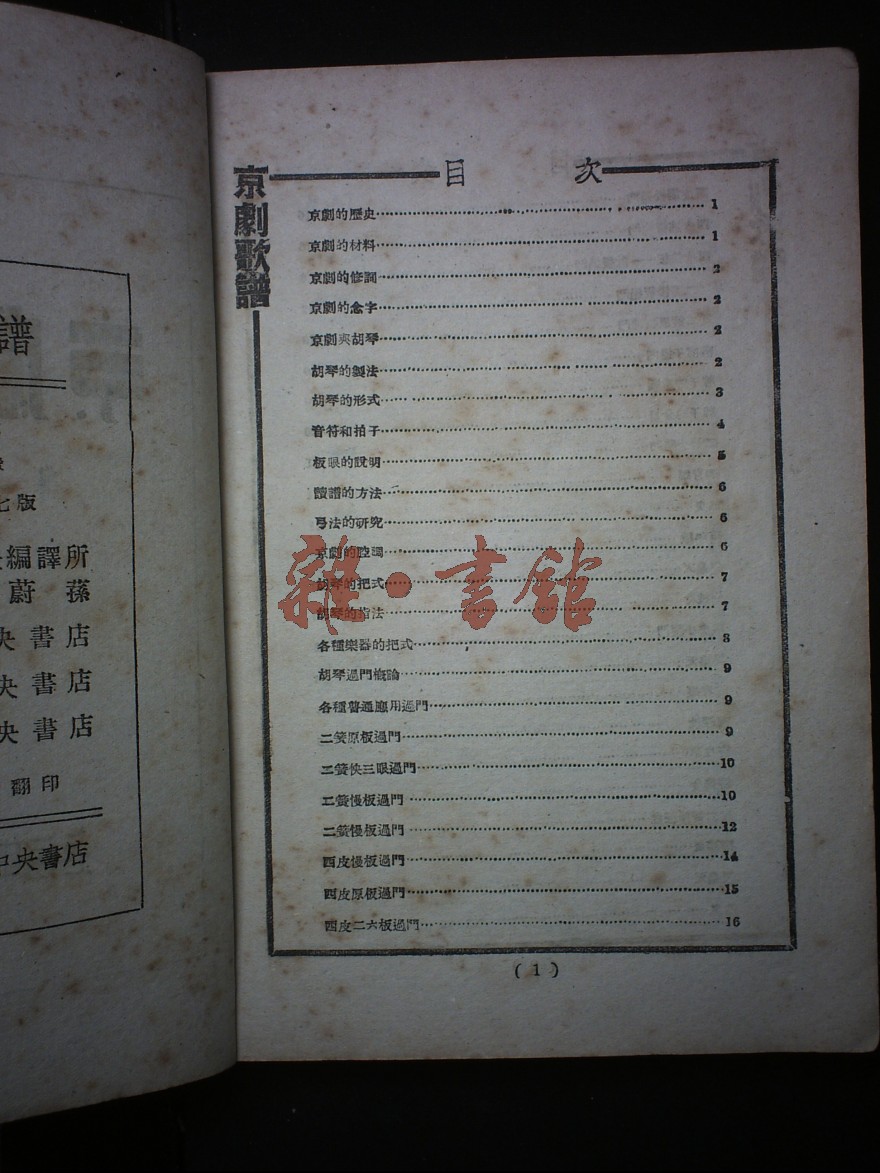 譜
七版
編譯所
蔚蓀
央書店
央書店
央書店
翻印
中央書店
京劇歌譜
目次
京劇的歷史 1
京劇的材料 1
京劇的修詞 2
京劇的念字 2
京劇與胡琴 2
胡琴的製法 2
胡琴的形式 3
音符和拍子 4
板眼的說明 5
讀譜的方法 6
弓法的研究 6
京劇的腔調 6
胡琴的把式 7
胡琴的指法 7
各種樂器的把式 8
胡琴過門概論 9
各種普通應用過門 9
二簧原板過門 9
二簧快三眼過門 10
二簧慢板過門 10
二簧慢板過門 12
西皮慢板過門 14
西皮原板過門 15
西皮二六板過門 16
(1)
雜·書館